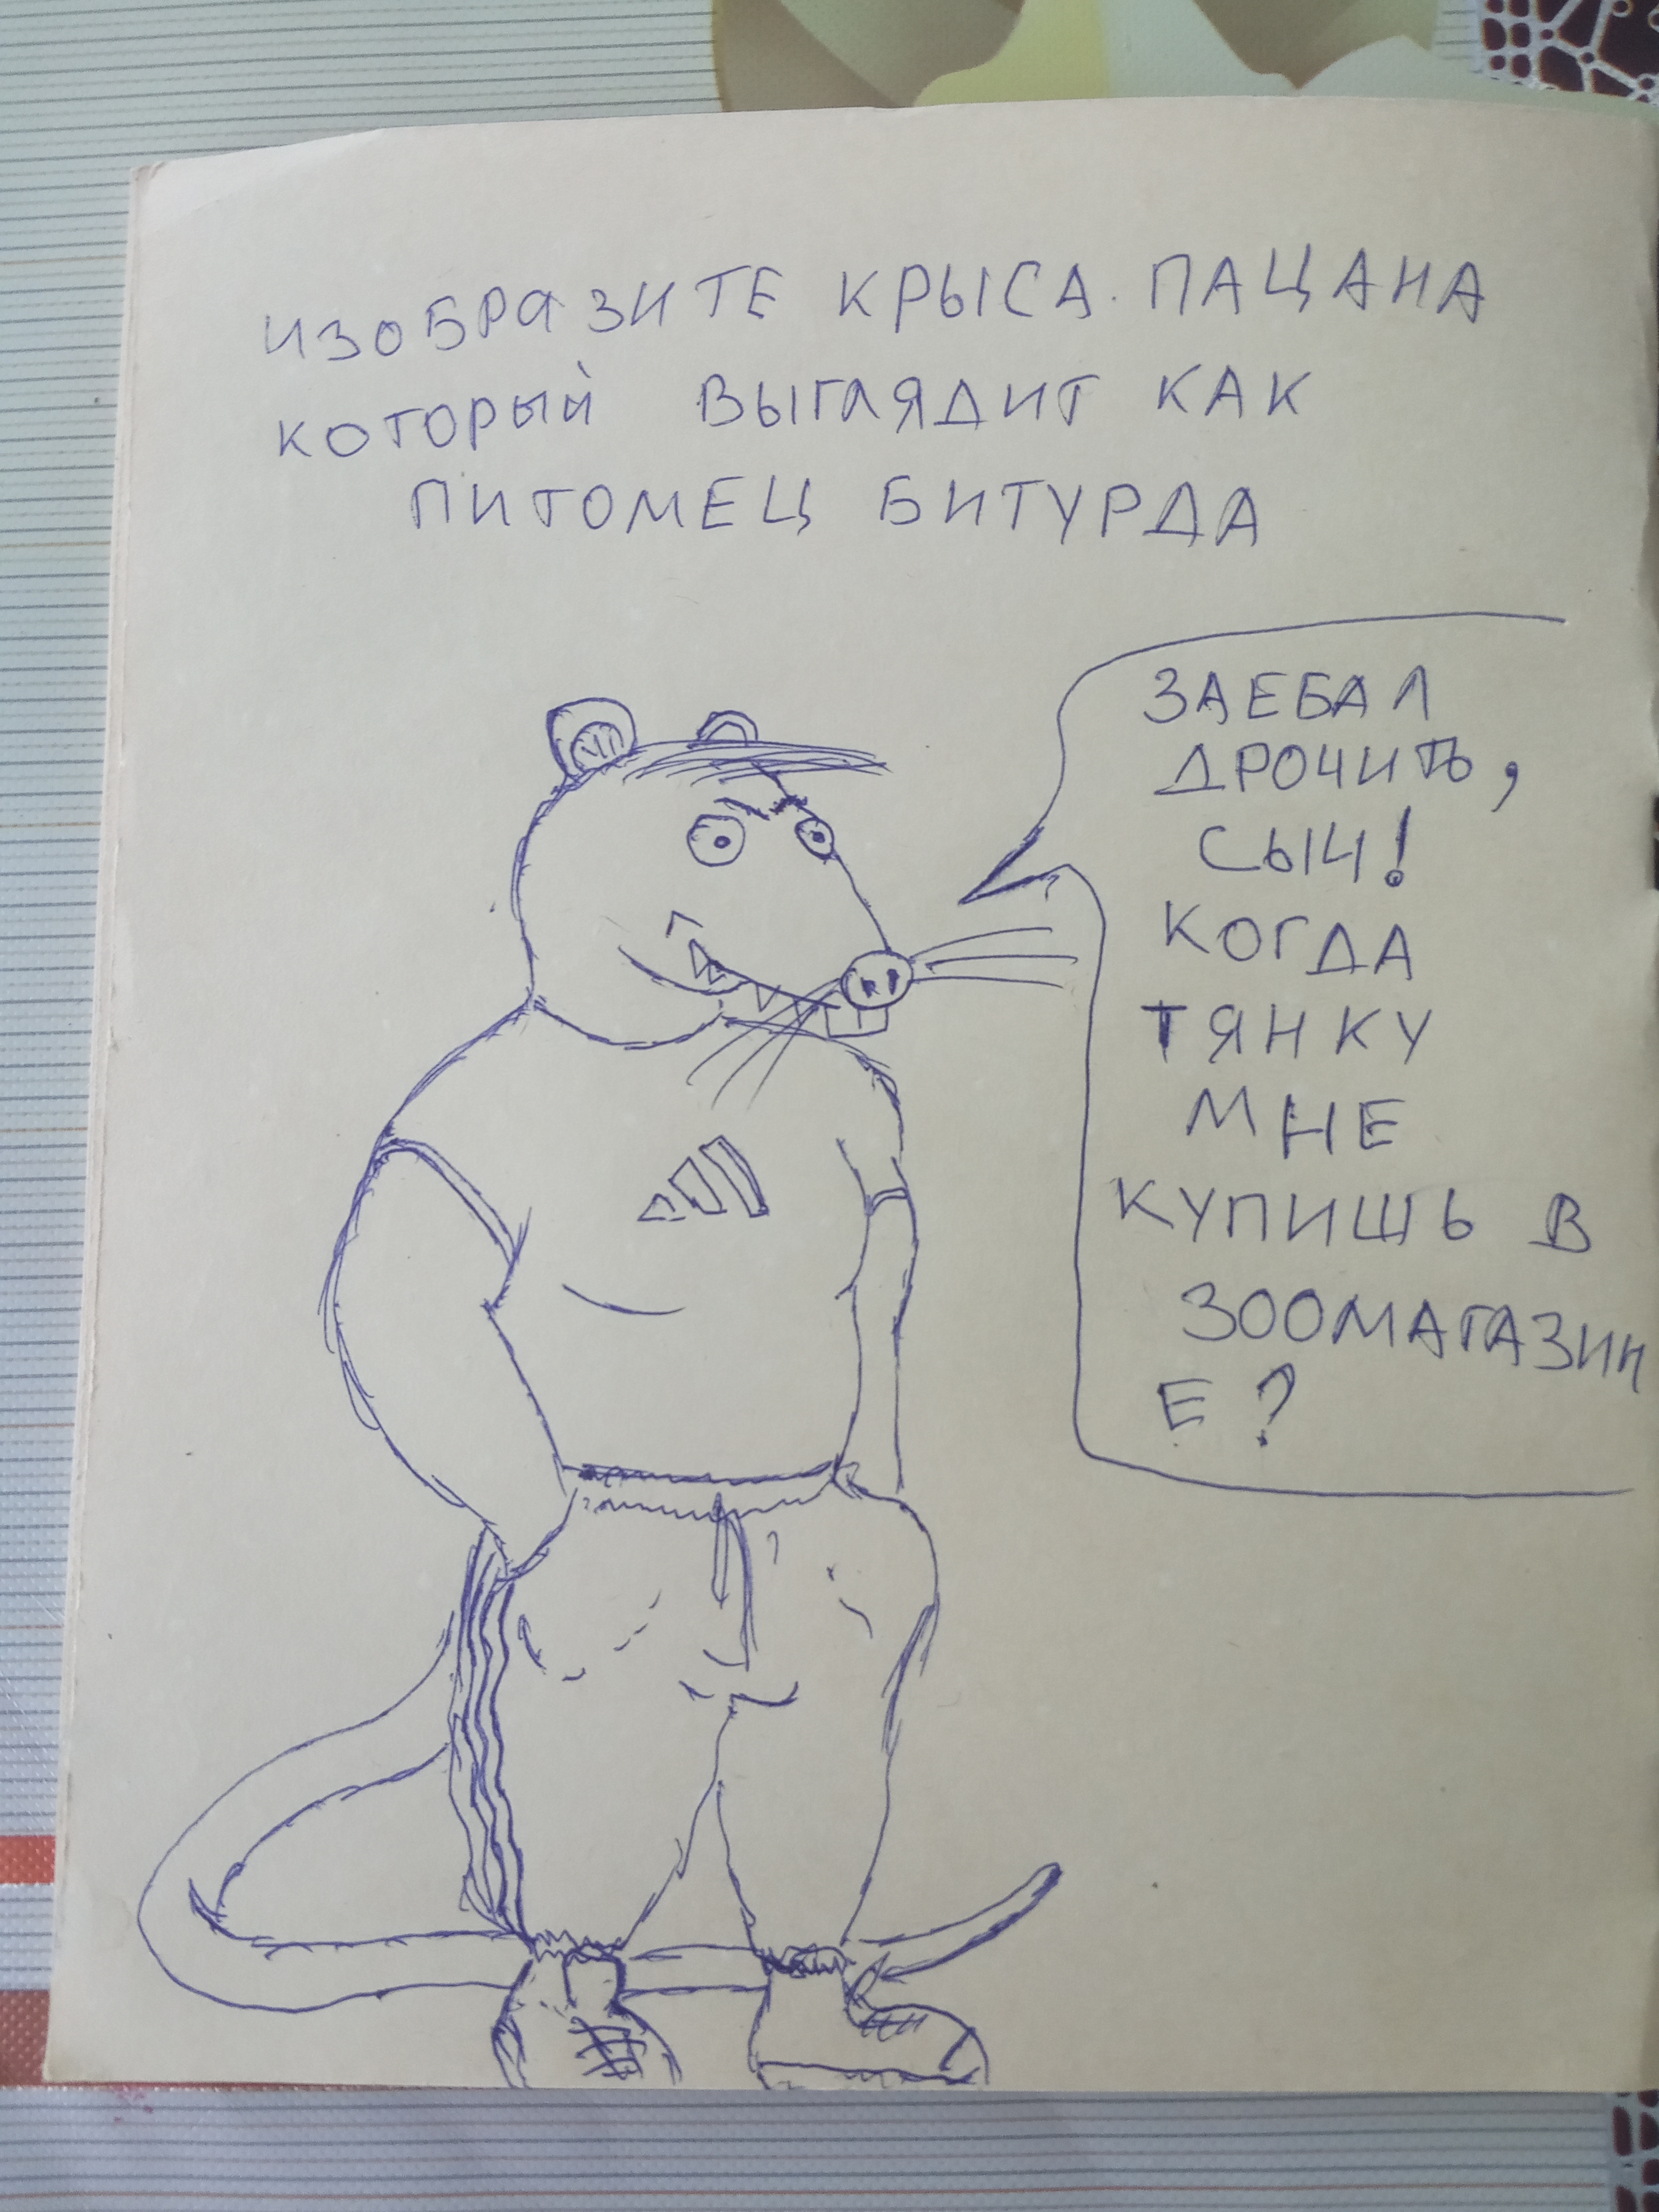 ИЗОБРАЗИТЕ КРЫСА. ПАЦАНА
КОТОРЫЙ ВЫГЛЯДИТ КАК
ПИТОМЕЦ БИТУРДА
ЗАЕБАЛ
ДРОЧИТЬ,
СЫЧ!
КОГДА
ТЯНКУ
МНЕ
КУПИШЬ В
ЗООМАГАЗИН
Е?